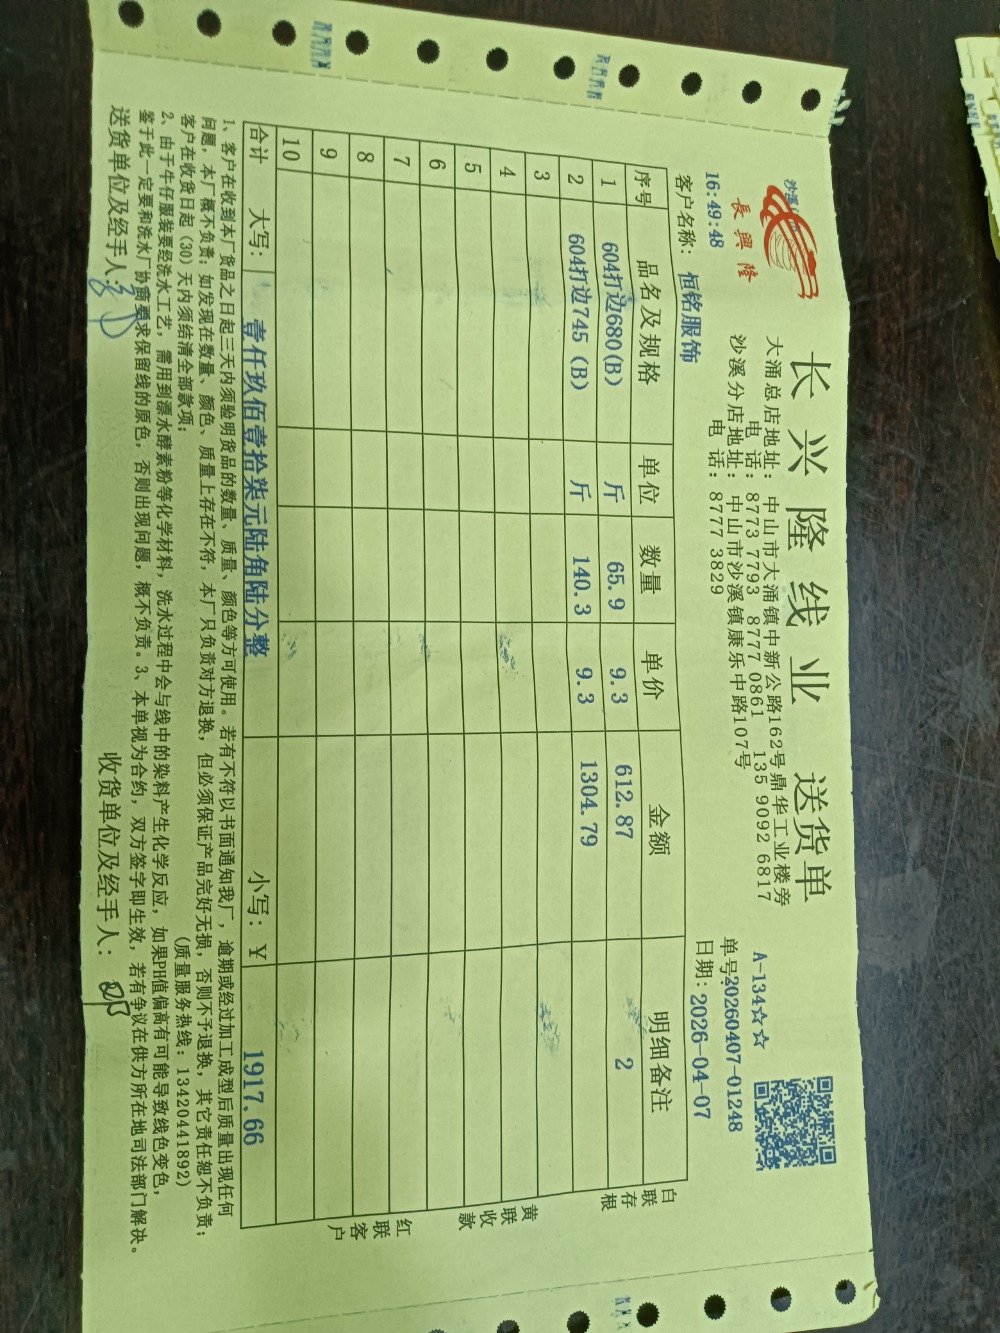 沙溪
長興隆
长兴隆线业 送货单
大涌总店地址： 中山市大涌镇中新公路162号鼎华工业楼旁
电 话： 8773 7793 8777 0861 135 9092 6817
沙溪分店地址： 中山市沙溪镇康乐中路107号
电 话： 8777 3829
A-134☆☆
单号20260407-01248
16:49:48
日期：2026-04-07
客户名称： 恒铭服饰
序号 品名及规格 单位 数量 单价 金额 明细备注
1 604打边680(B) 斤 65.9 9.3 612.87 2
2 604打边745 (B) 斤 140.3 9.3 1304.79
3
4
5
6
7
8
9
10
合计 大写： 壹仟玖佰壹拾柒元陆角陆分整 小写：￥ 1917.66
白联存根
黄联收款
红联客户
1、客户在收到本厂货品之日起三天内须验明货品的数量、质量、颜色等方可使用。若有不符以书面通知我厂，逾期或经过加工成型后质量出现任何
问题，本厂概不负责；如发现在数量、颜色、质量上存在不符，本厂只负责对方退换，但必须保证产品完好无损，否则不予退换，其它责任恕不负责；
客户在收货日起（30）天内须结清全部款项； (质量服务热线：13420441892)
2、由于牛仔服装要经洗水工艺，需用到漂水酵素粉等化学材料，洗水过程中会与线中的染料产生化学反应，如果PH值偏高有可能导致线色变色，
鉴于此一定要和洗水厂协商要求保留线的原色，否则出现问题，概不负责。3、本单视为合约，双方签字即生效，若有争议在供方所在地司法部门解决。
送货单位及经手人： 收货单位及经手人：